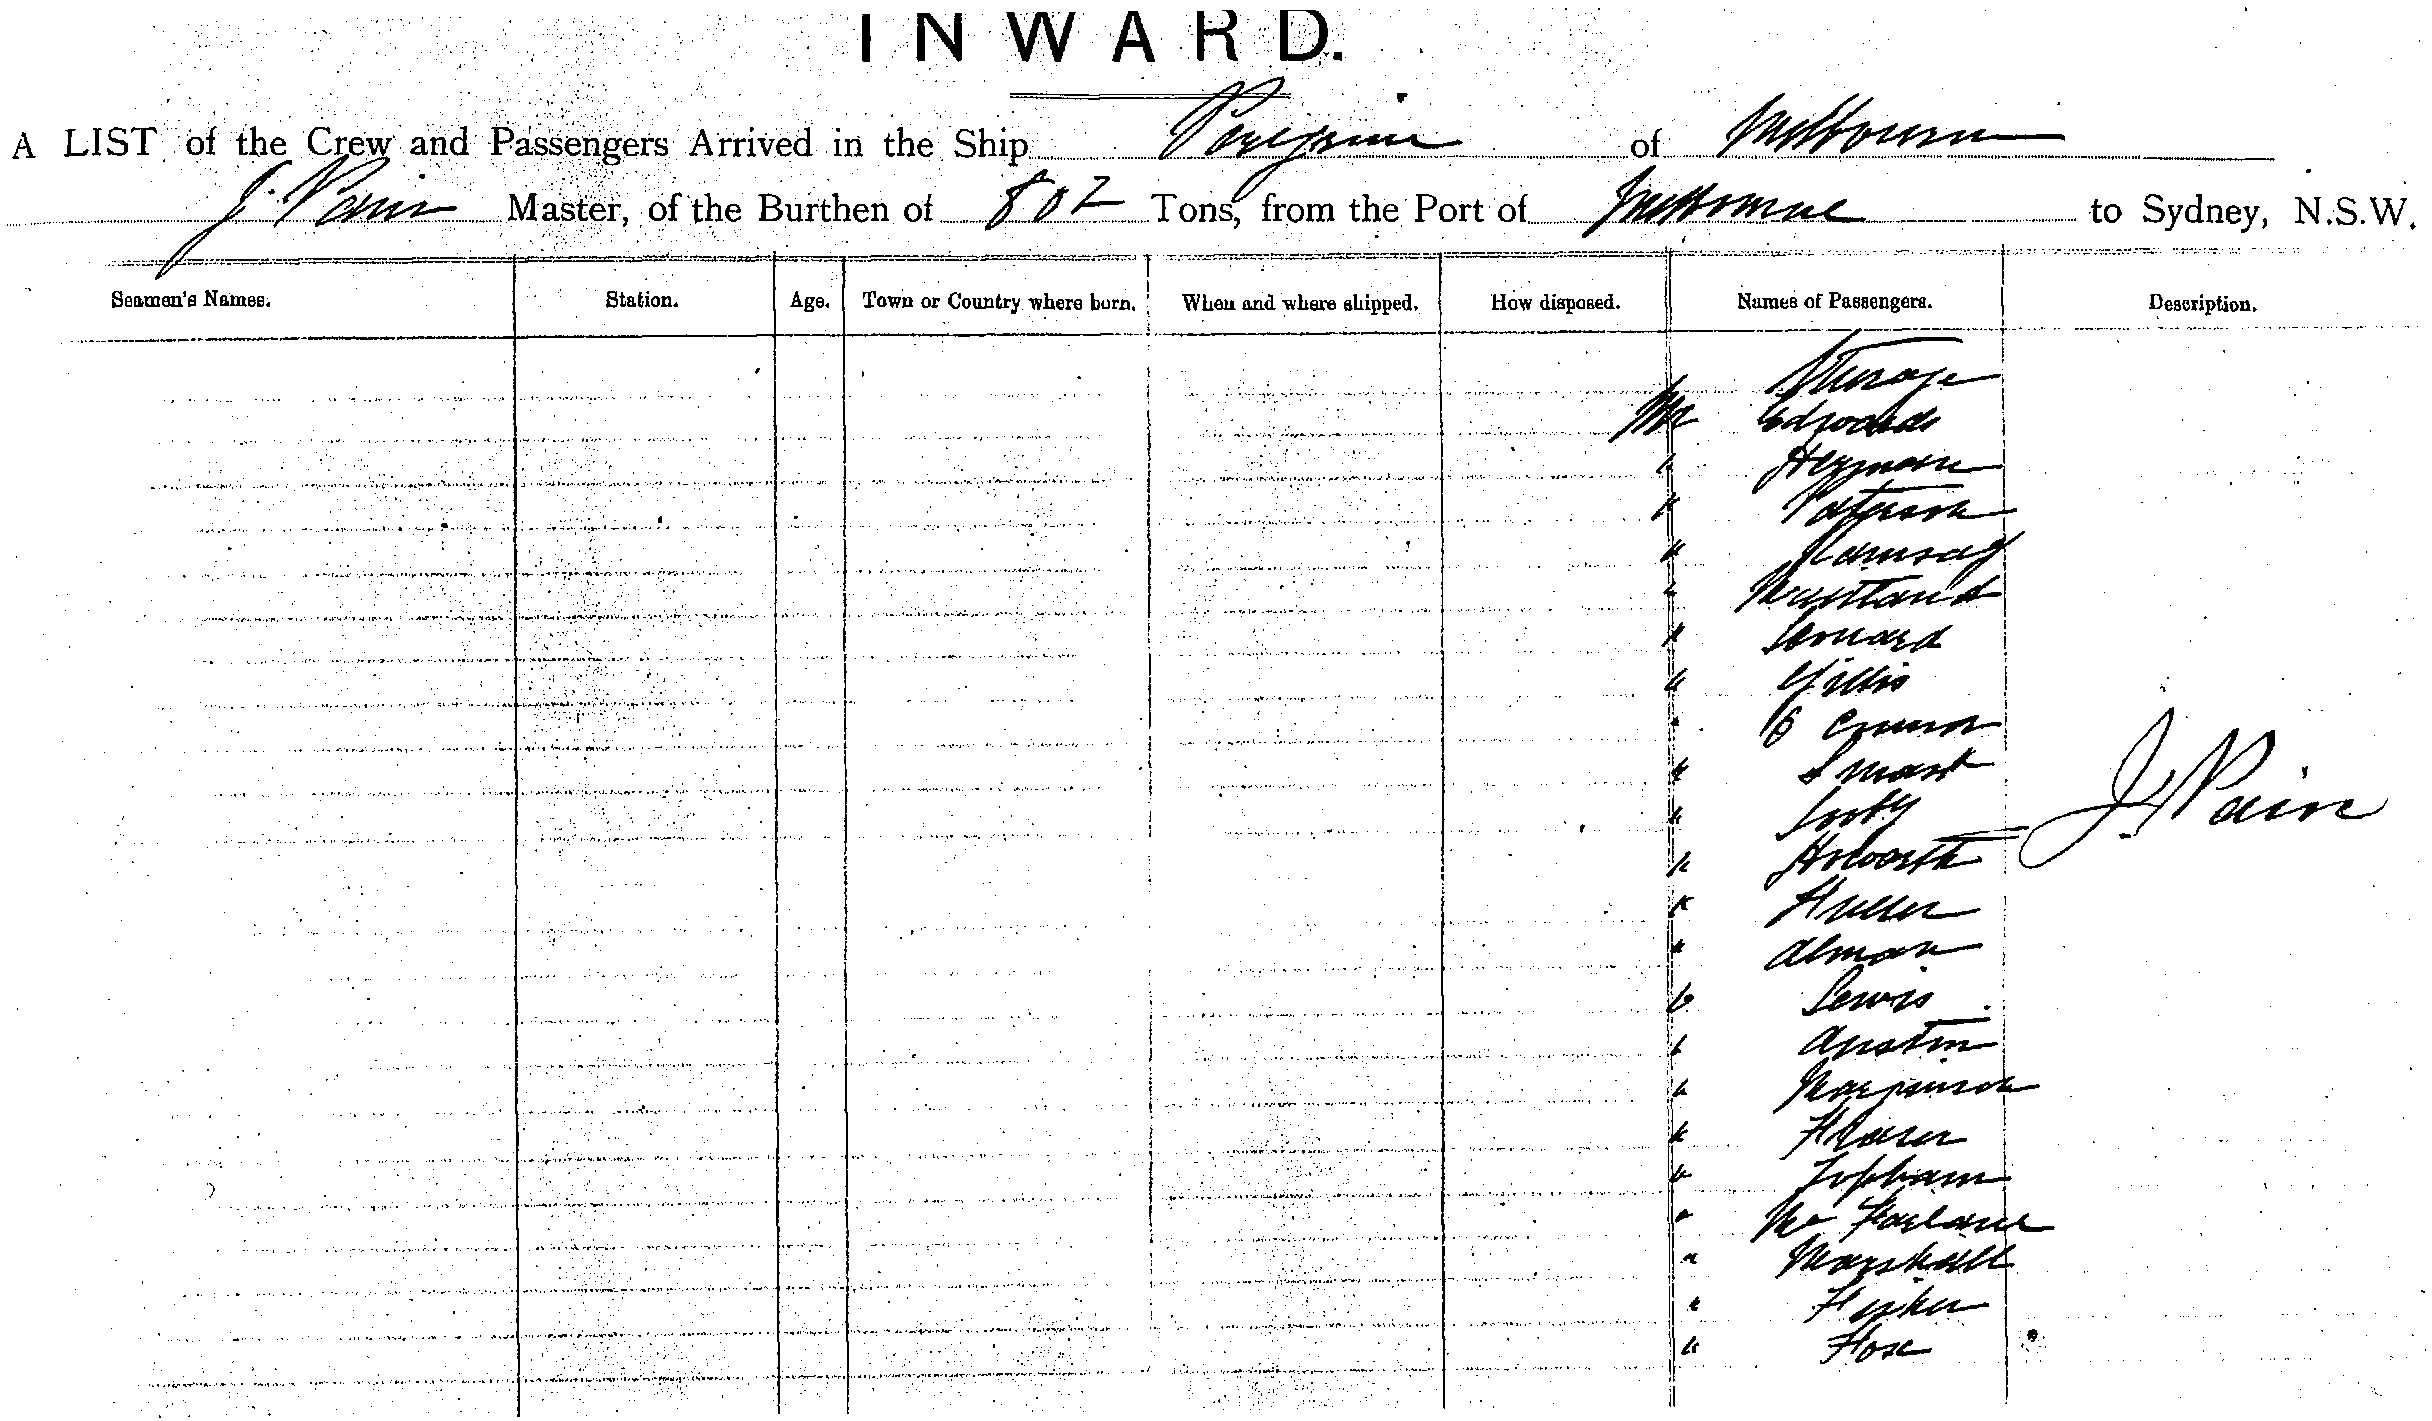 INWARD.
A LIST of the Crew and Passengers Arrived in the Ship Peregrine of Melbourne
J. Pain Master, of the Burthen of 802 Tons, from the Port of Melbourne to Sydney, N.S.W.
Seamen's Names. Station. Age. Town or Country where born. When and where shipped. How disposed. Names of Passengers. Description.
Steerage
Mr Edwards
" Heyman
" Paterson
" Ramsay
"
" Leonard
" Gillis
" O Connor
" Smart
" Sooby
" Howorth
"
" Alman
" Lewis
" Austin
"
" Fraser
" Topham
" Mc Farlane
" Marshall
"
" Hose
J Pain